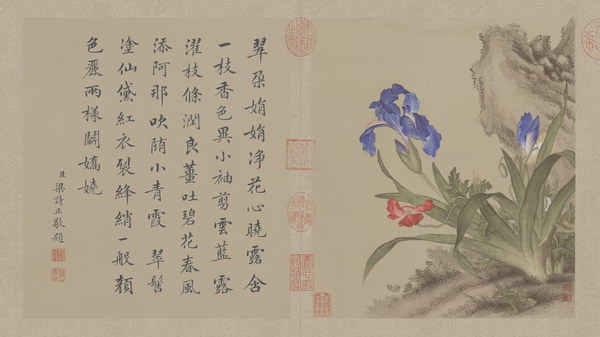 翠朶娟娟淨花心曉露含
一枝香色異小袖剪雲藍 露
濯枝條潤良薑吐碧花春風
添阿那吹小青霞 翠髻
塗仙黛紅衣裂絳綃一般顏
色兩樣鬭嬌嬈
臣梁詩正敬題